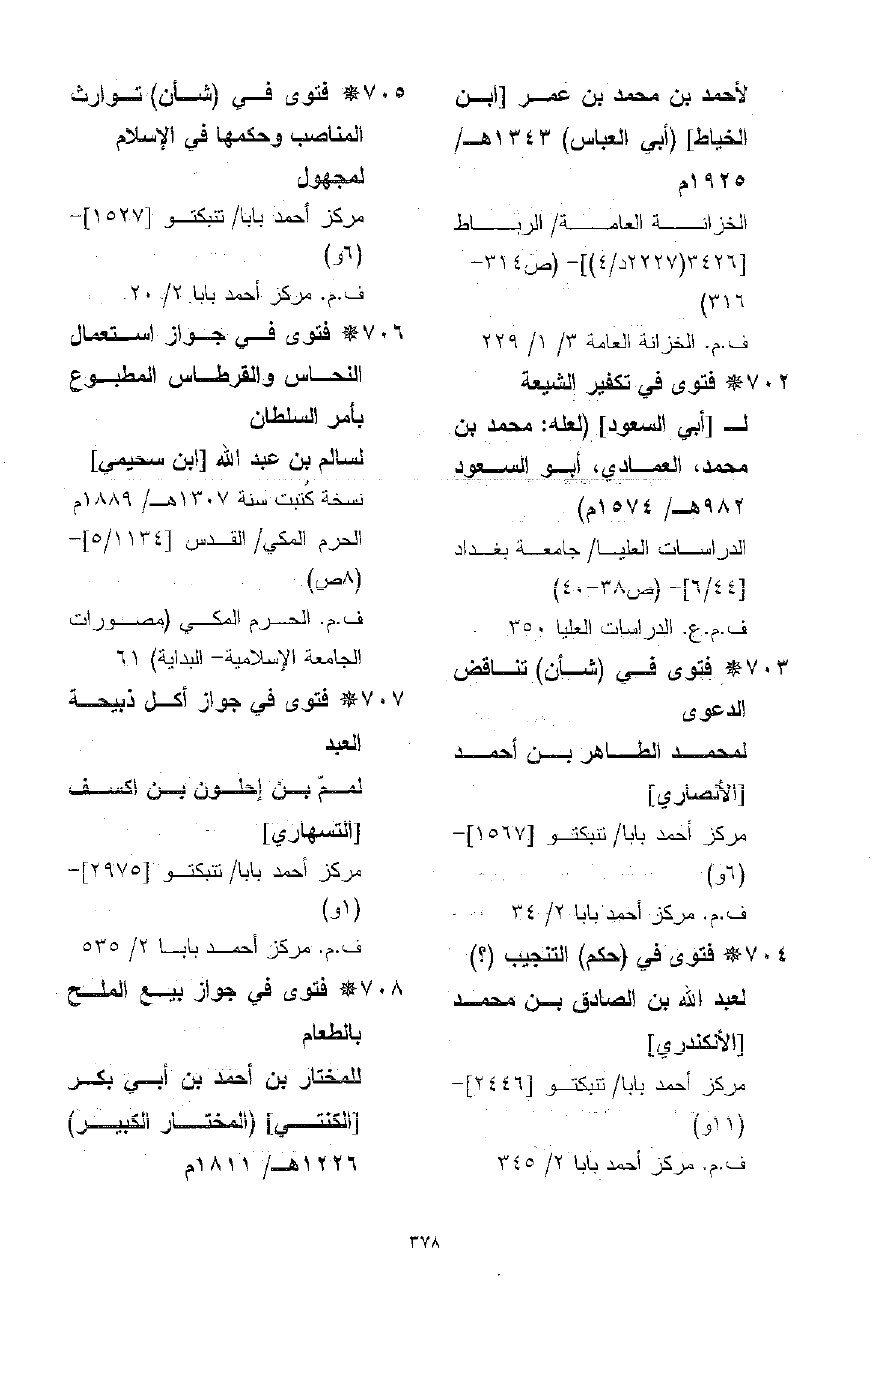 لأحمد بن محمد بن عمر [ابن
الخياط] (أبي العباس) ١٣٤٣هـ/
١٩٢٥م
الخزانة العامة/ الرباط
[٣٤٢٦(٢٢٢٧د/٤)]- (ص٣١٤-
٣١٦)
ف.م. الخزانة العامة ٣/ ١/ ٢٢٩
٧٠٢* فتوى في تكفير الشيعة
لـ [أبي السعود] (لعله: محمد بن
محمد، العمادي، أبو السعود
٩٨٢هـ/ ١٥٧٤م)
الدراسات العليا/ جامعة بغداد
[٦/٤٤]- (ص٣٨-٤٠)
ف.م.ع. الدراسات العليا ٣٥٠
٧٠٣* فتوى في (شأن) تناقض
الدعوى
لمحمد الطاهر بن أحمد
[الأنصاري]
مركز أحمد بابا/ تنبكتو [١٥٦٧]-
(٦و)
ف.م. مركز أحمد بابا ٢/ ٣٤
٧٠٤* فتوى في (حكم) التنجيب (؟)
لعبد الله بن الصادق بن محمد
[الأنكندري]
مركز أحمد بابا/ تنبكتو [٢٤٤٦]-
(١١و)
ف.م. مركز أحمد بابا ٢/ ٣٤٥
٧٠٥* فتوى في (شأن) توارث
المناصب وحكمها في الإسلام
لمجهول
مركز أحمد بابا/ تنبكتو [١٥٢٧]-
(٦و)
ف.م. مركز أحمد بابا ٢/ ٢٠
٧٠٦* فتوى في جواز استعمال
النحاس والقرطاس المطبوع
بأمر السلطان
لسالم بن عبد الله [ابن سحيمي]
نسخة كتبت سنة ١٣٠٧هـ/ ١٨٨٩م
الحرم المكي/ القدس [٥/١١٣٤]-
(٨ص)
ف.م. الحرم المكي (مصورات
الجامعة الإسلامية- البداية) ٦١
٧٠٧* فتوى في جواز أكل ذبيحة
العبد
لممّ بن إحلون بن اكسف
[التسهاري]
مركز أحمد بابا/ تنبكتو [٢٩٧٥]-
(١و)
ف.م. مركز أحمد بابا ٢/ ٥٣٥
٧٠٨* فتوى في جواز بيع الملح
بالطعام
للمختار بن أحمد بن أبي بكر
[الكنتي] (المختار الكبير)
١٢٢٦هـ/ ١٨١١م
٣٧٨